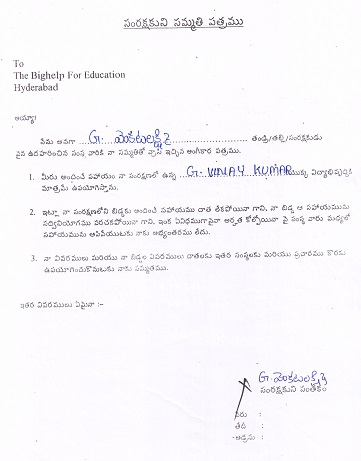 సంరక్షకుని సమ్మతి పత్రము
To
The Bighelp For Education
Hyderabad
అయ్యా!
నేను అనగా ...G. వెంకటలక్ష్మి........................ తండ్రి/తల్లి/సంరక్షకుడు
పైన ఉదహరించిన సంస్థ వారికి నా సమ్మతితో వ్రాసి ఇచ్చిన అంగీకార పత్రము.
1. మీరు అందించే సహాయం నా సంరక్షణలో ఉన్న G. VINAY KUMAR యొక్క విద్యాభివృద్ధికి
మాత్రమే ఉపయోగిస్తాను.
2. ఇట్లా నా సంరక్షణలోని బిడ్డకు అందించే సహాయము దాత లేకపోయినా గాని, నా బిడ్డ ఆ సహాయమును
సద్వినియోగము పరచకపోయినా గాని, ఇంక ఏవిధముగానైనా అర్హత కోల్పోయినా పై సంస్థ వారు మధ్యలో
సహాయమును ఆపివేయుటకు నాకు అభ్యంతరము లేదు.
3. నా వివరములు మరియు నా బిడ్డల వివరములు దాతలకు ఇతర సంస్థలకు మరియు ప్రచారము కొరకు
ఉపయోగించుకొనుటకు నాకు సమ్మతము.
ఇతర వివరములు ఏమైనా :-
G. వెంకటలక్ష్మి
సంరక్షకుని సంతకం
పేరు :
తేదీ :
అడ్రసు :